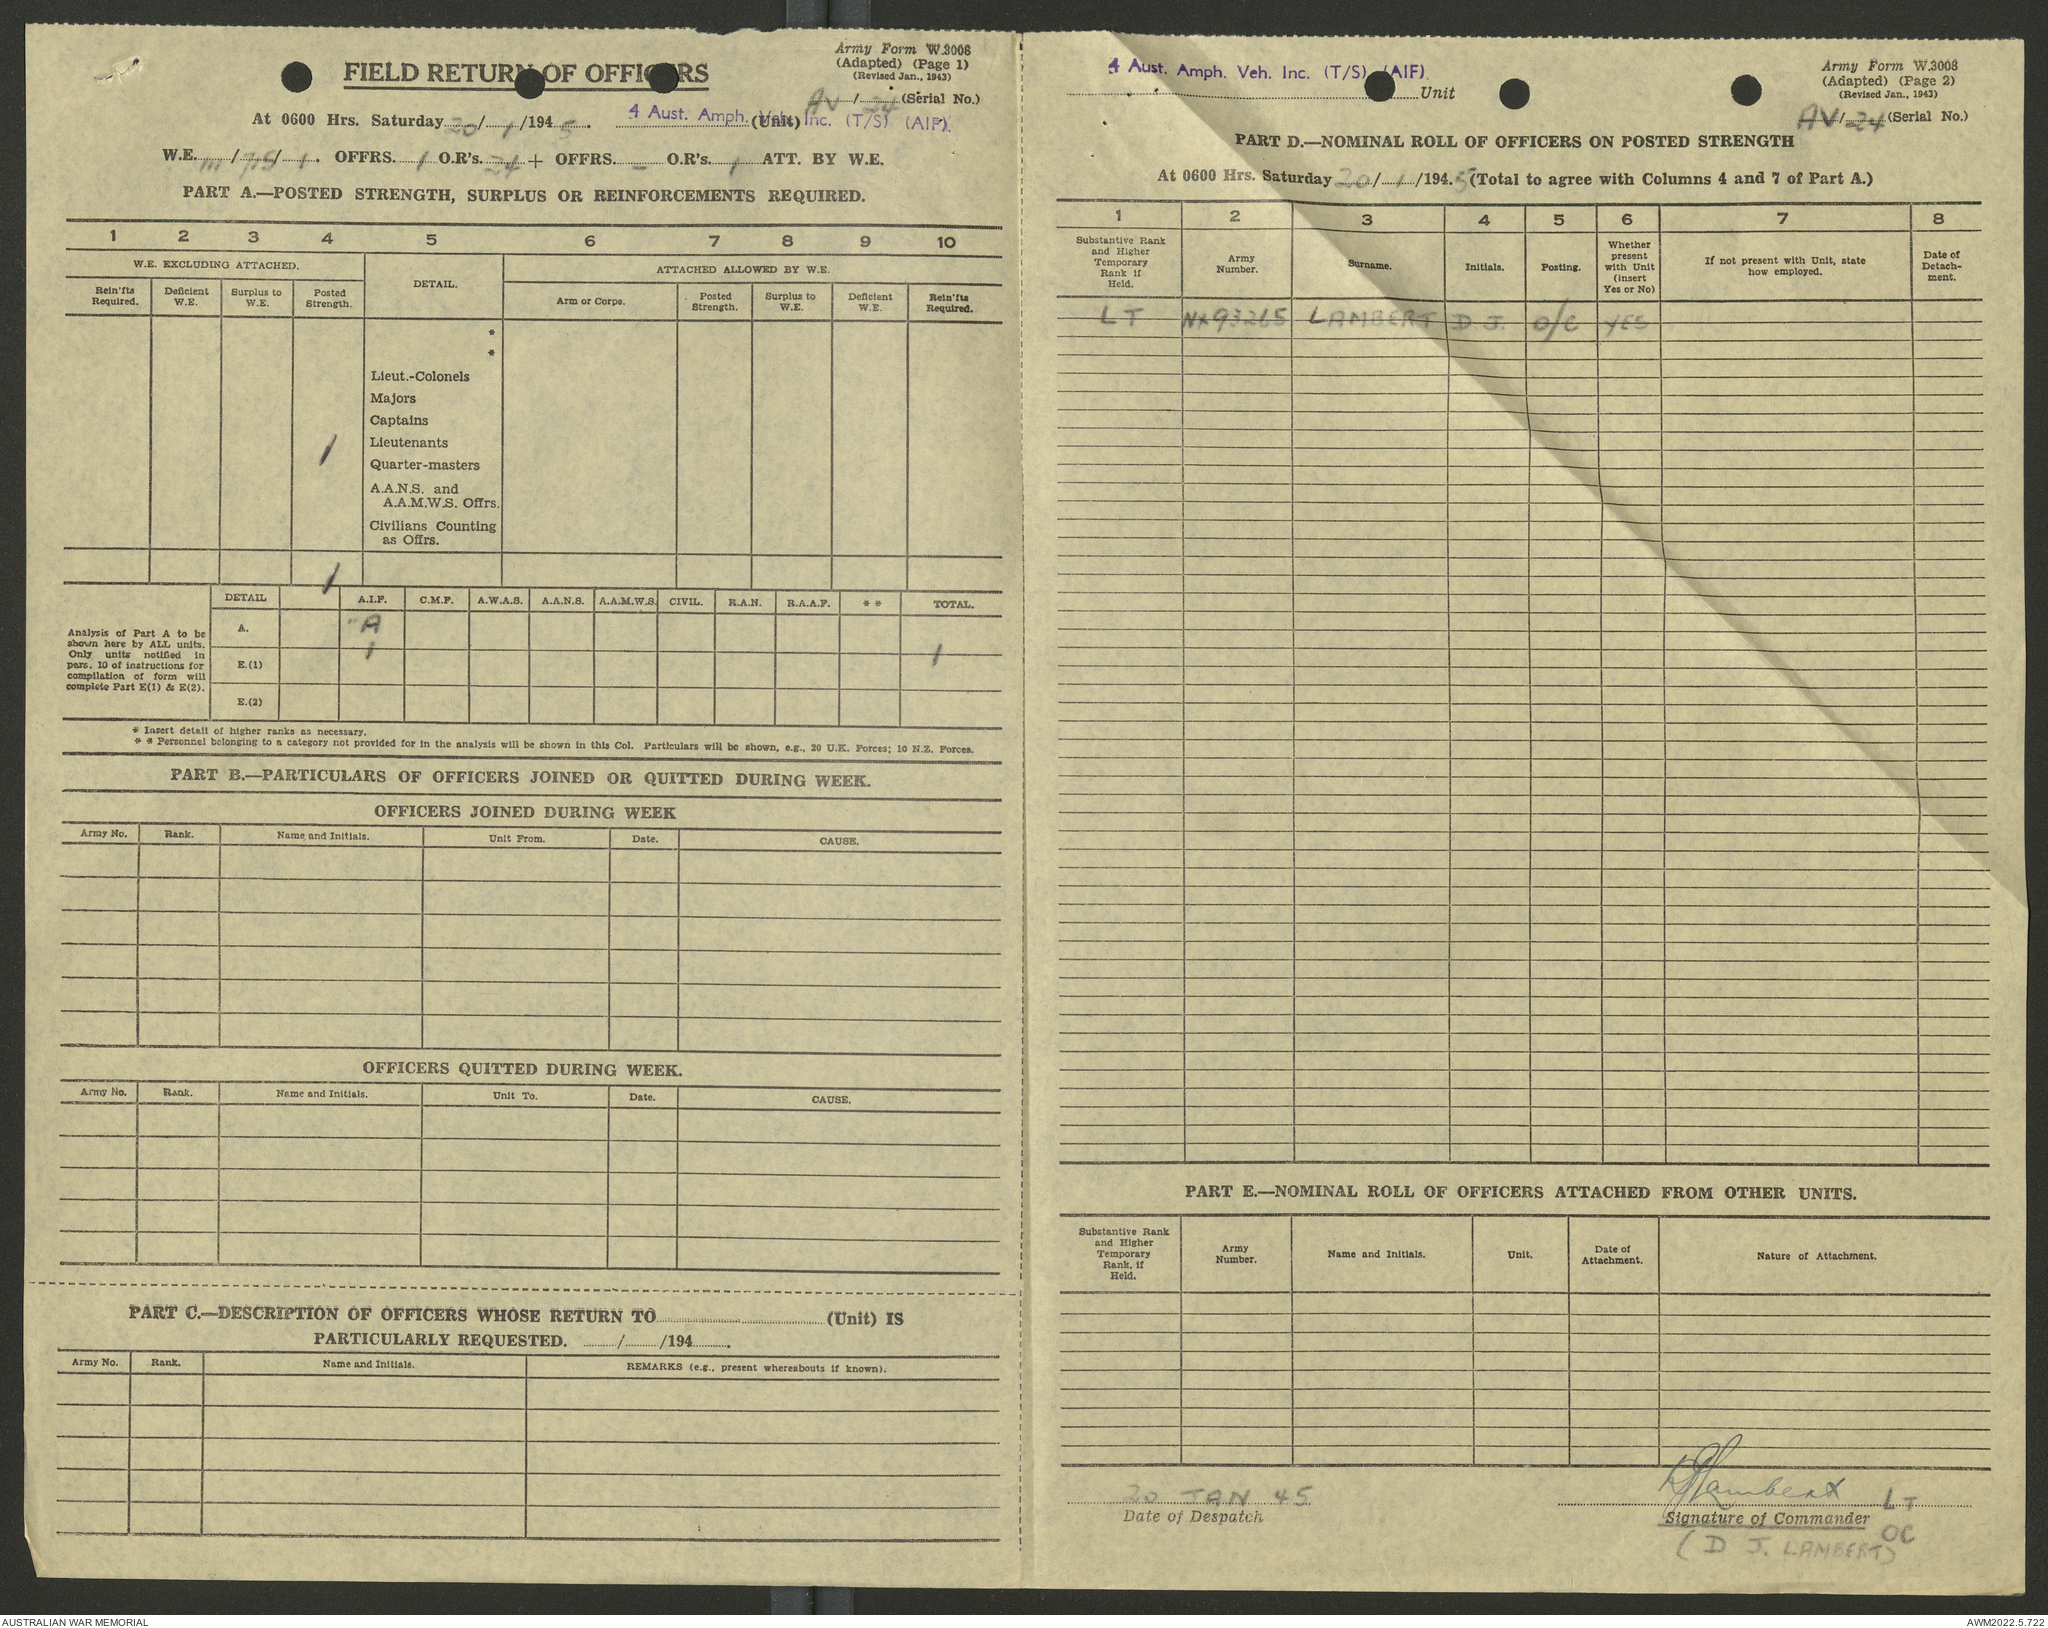 Army Form W.3008
(Adapted) (Page 1)
(Revised Jan., 1943)
FIELD RETURN OF OFFICERS
AV / 24 (Serial No.)
At 0600 Hrs. Saturday 20/1/1945. 4 Aust. Amph. Veh. Inc. (T/S) (AIF). (Unit)
W.E. III/75/1. OFFRS. 1 O.R's. 24 + OFFRS. - O.R's. 1 ATT. BY W.E.
PART A.—POSTED STRENGTH, SURPLUS OR REINFORCEMENTS REQUIRED.
1 2 3 4 5 6 7 8 9 10
W.E. EXCLUDING ATTACHED. DETAIL. ATTACHED ALLOWED BY W.E.
Rein'fts Required. Deficient W.E. Surplus to W.E. Posted Strength. Arm or Corps. Posted Strength. Surplus to W.E. Deficient W.E. Rein'fts Required.
*
*
Lieut.-Colonels
Majors
Captains
1 Lieutenants
Quarter-masters
A.A.N.S. and
A.A.M.W.S. Offrs.
Civilians Counting
as Offrs.
1
DETAIL A.I.F. C.M.F. A.W.A.S. A.A.N.S. A.A.M.W.S. CIVIL. R.A.N. R.A.A.F. * * TOTAL.
Analysis of Part A to be
shown here by ALL units.
Only units notified in
pars. 10 of instructions for
compilation of form will
complete Part E(1) & E(2).
A. A
1 1
E.(1)
E.(2)
* Insert detail of higher ranks as necessary.
* * Personnel belonging to a category not provided for in the analysis will be shown in this Col. Particulars will be shown, e.g., 20 U.K. Forces; 10 N.Z. Forces.
PART B.—PARTICULARS OF OFFICERS JOINED OR QUITTED DURING WEEK.
OFFICERS JOINED DURING WEEK
Army No. Rank. Name and Initials. Unit From. Date. CAUSE.
OFFICERS QUITTED DURING WEEK.
Army No. Rank. Name and Initials. Unit To. Date. CAUSE.
PART C.—DESCRIPTION OF OFFICERS WHOSE RETURN TO (Unit) IS
PARTICULARLY REQUESTED. / /194 .
Army No. Rank. Name and Initials. REMARKS (e.g., present whereabouts if known).
4 Aust. Amph. Veh. Inc. (T/S) (AIF). Unit
Army Form W.3008
(Adapted) (Page 2)
(Revised Jan., 1943)
AV/24 (Serial No.)
PART D.—NOMINAL ROLL OF OFFICERS ON POSTED STRENGTH
At 0600 Hrs. Saturday 20/1/1945 (Total to agree with Columns 4 and 7 of Part A.)
1 2 3 4 5 6 7 8
Substantive Rank and Higher Temporary Rank if Held. Army Number. Surname. Initials. Posting. Whether present with Unit (insert Yes or No) If not present with Unit, state how employed. Date of Detach- ment.
LT NX93265 LAMBERT D.J. O/C YES
PART E.—NOMINAL ROLL OF OFFICERS ATTACHED FROM OTHER UNITS.
Substantive Rank and Higher Temporary Rank, if Held. Army Number. Name and Initials. Unit. Date of Attachment. Nature of Attachment.
20 JAN 45 DJLambert LT
Date of Despatch Signature of Commander OC
(D J. LAMBERT)
AUSTRALIAN WAR MEMORIAL AWM2022.5.722